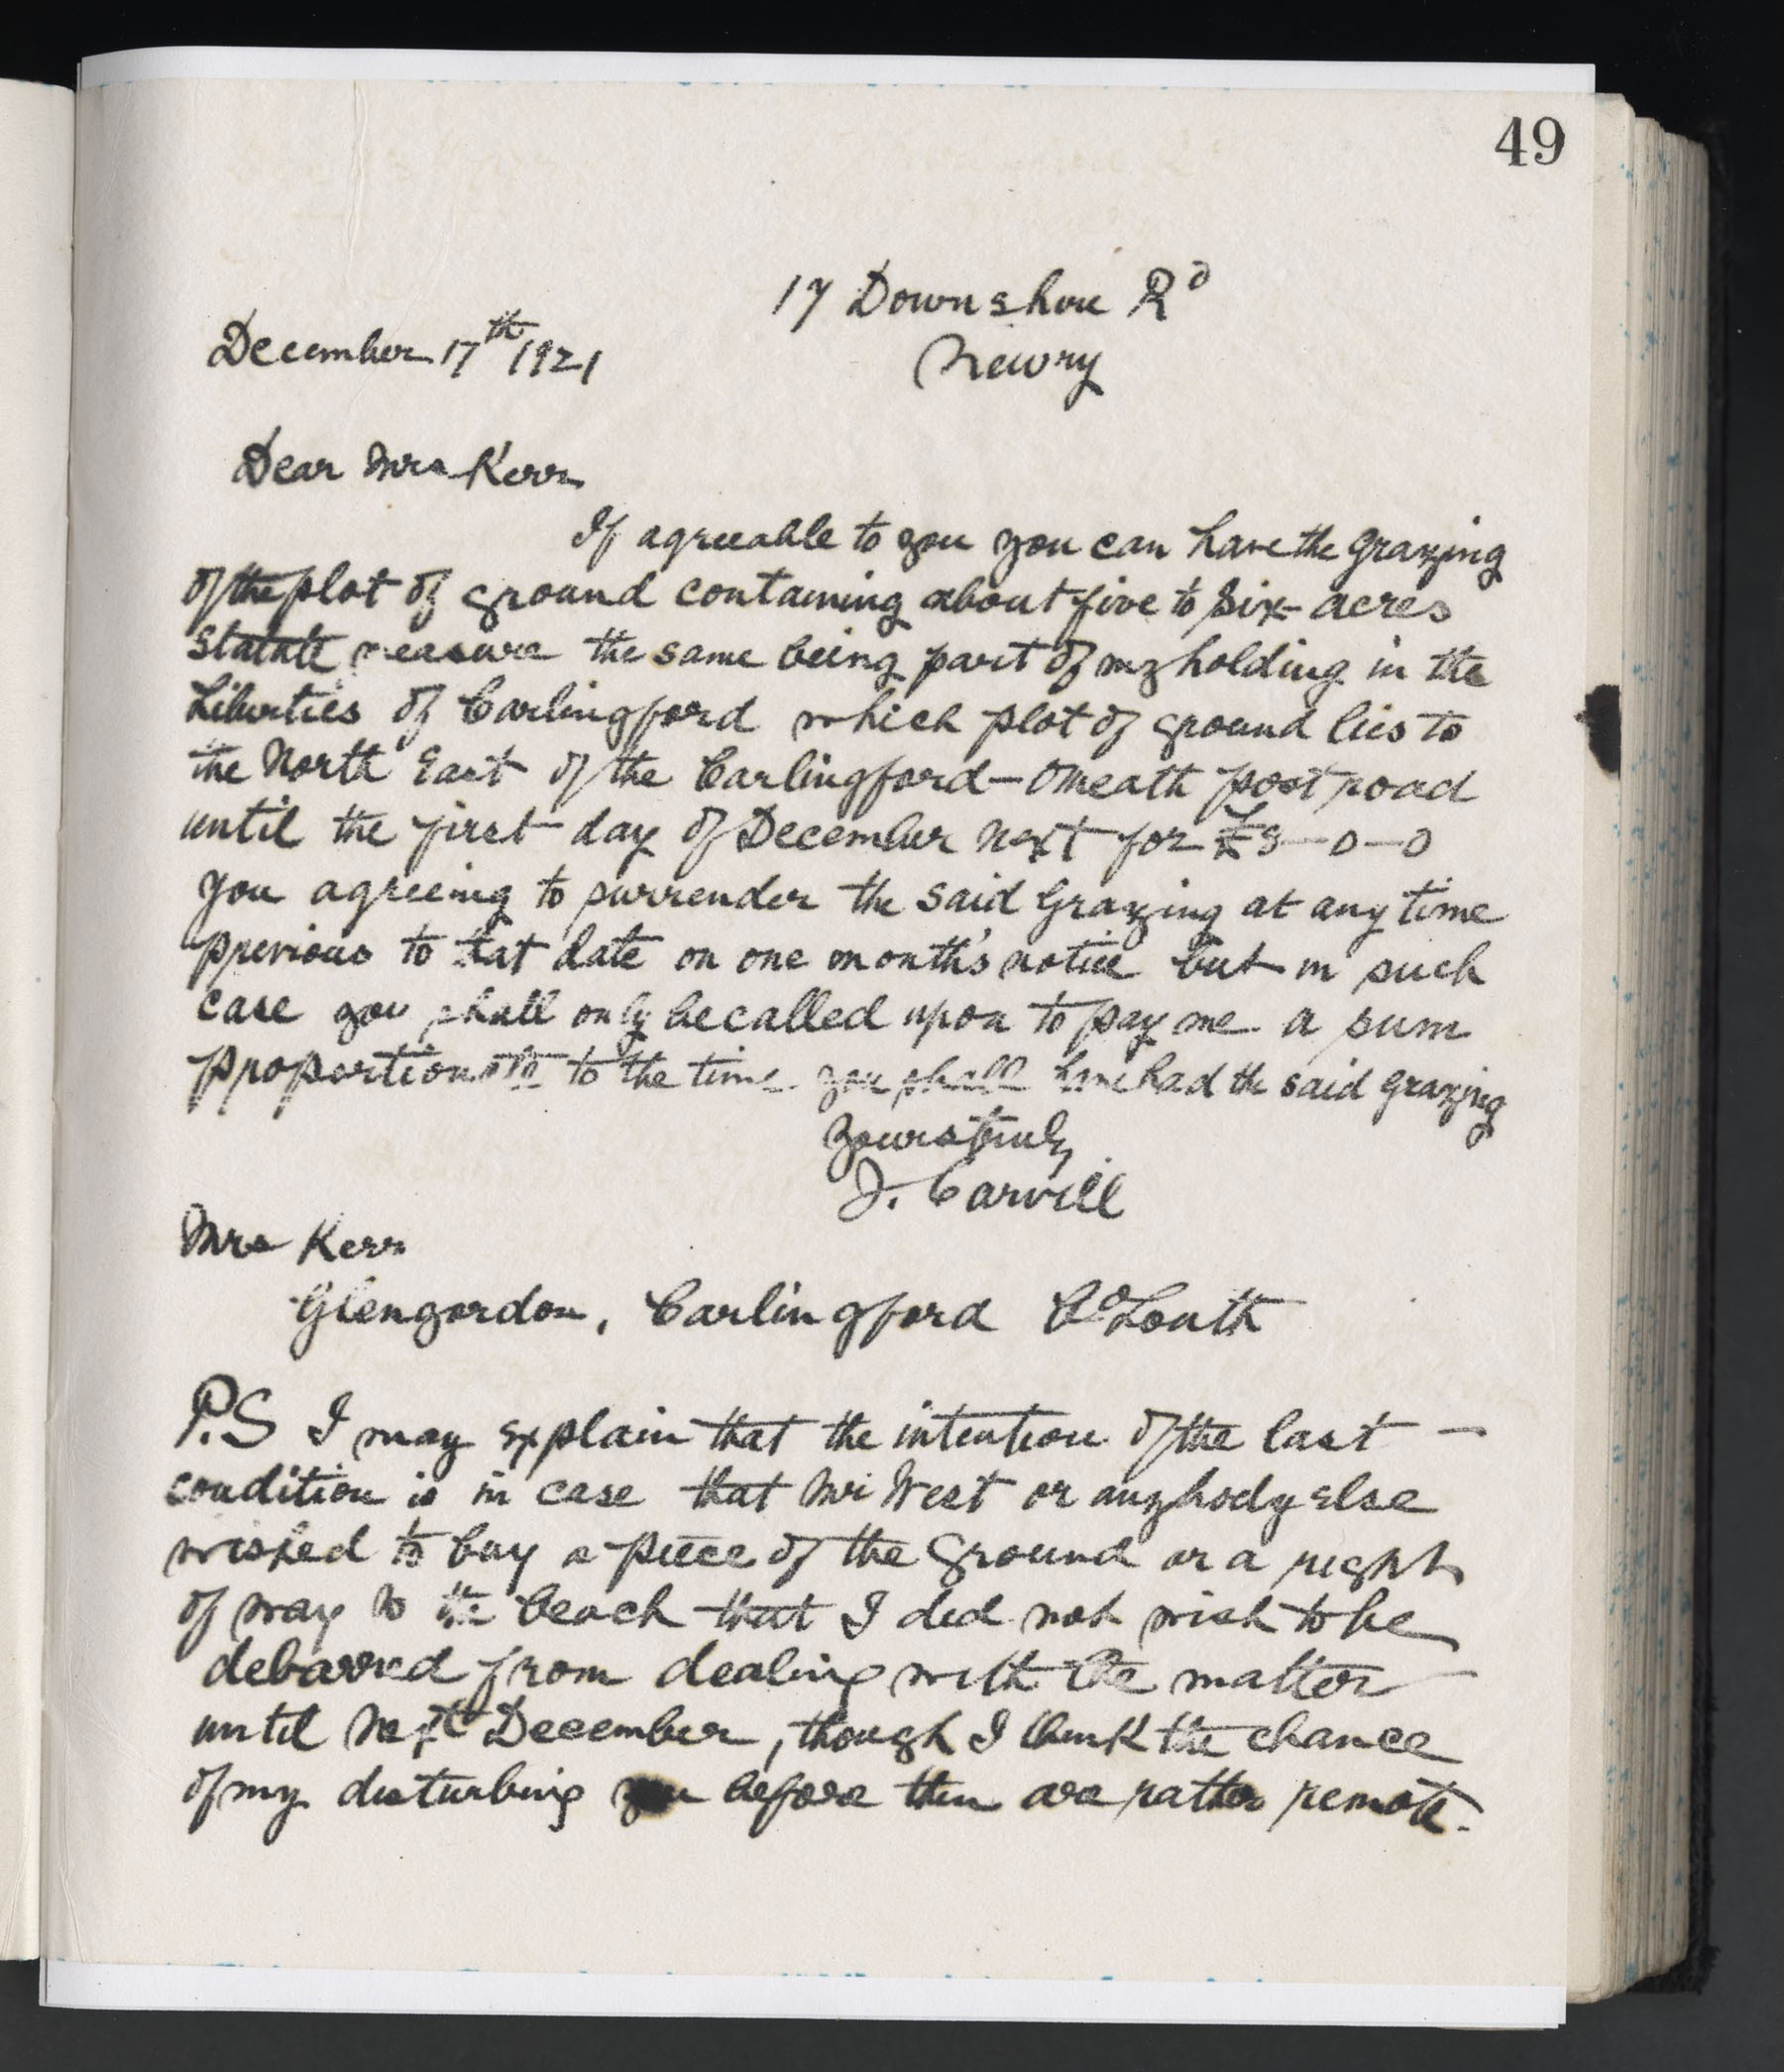 49
17 Downshire Rd
December 17th 1921
Newry
Dear Mrs Kerr
If agreeable to you you can have the grazing
of the plot of ground containing about five to six acres
statute measure the same being part of my holding in the
Liberties of Carlingford which plot of ground lies to
the North East of the Carlingford—Omeath post road
until the first day of December next for £8—0—0
you agreeing to surrender the said grazing at any time
previous to that date on one month's notice but in such
case you shall only be called upon to pay me a sum
proportionate to the time you shall have had the said grazing
Yours truly
J. Carvill
Mrs Kerr
Glengordon, Carlingford Co Louth
P.S I may explain that the intention of the last —
condition is in case that Mr West or anybody else
wished to buy a piece of the ground or a right
of way to the beach that I did not wish to be
debarred from dealing with the matter
until next December, though I think the chance
of my disturbing you before then are rather remote.